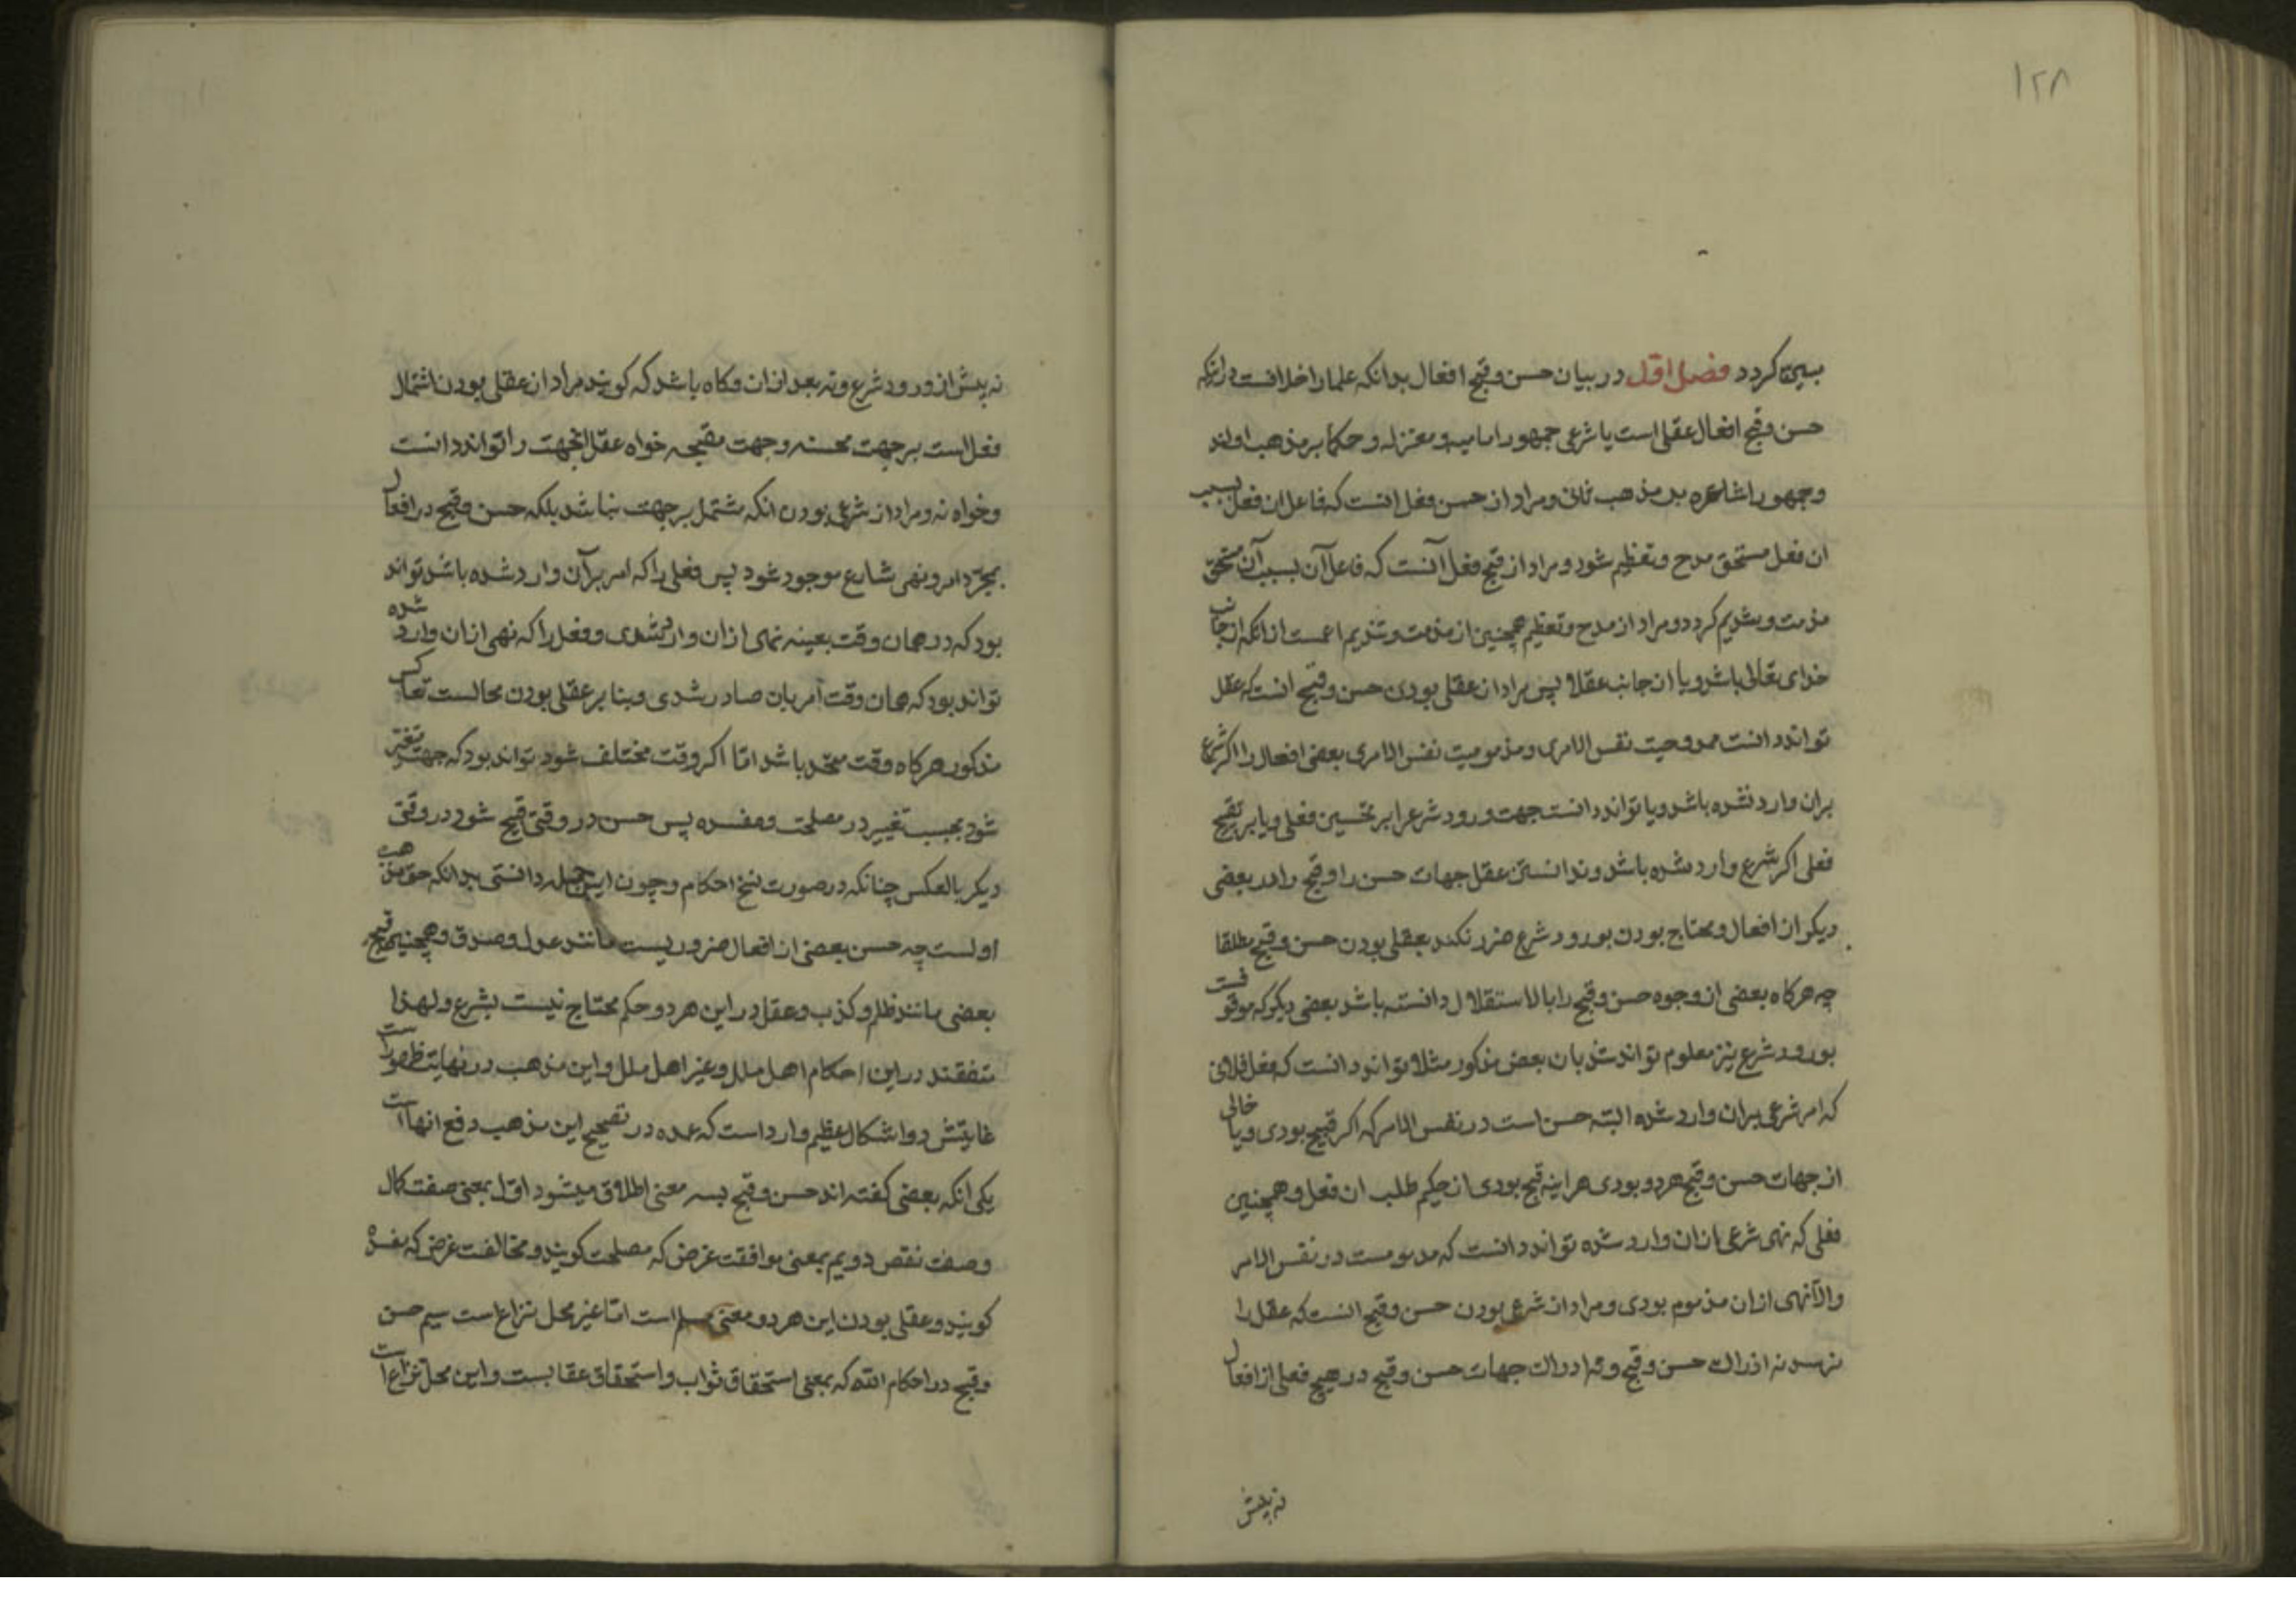 ۱۲۸
مبین گردد فصل اول در بیان حسن و قبح افعال بدانکه علما را خلافست در آنکه
حسن و قبح افعال عقلی است یا شرعی جمهور امامیه و معتزله و حکما بر مذهب اولند
و جمهور اشاعره بر مذهب ثانی و مراد از حسن فعل انست که فاعل ان فعل بسبب
ان فعل مستحق مدح و تعظیم شود و مراد از قبح فعل آنست که فاعل آن بسبب آن مستحق
مذمت و تندیم کردد و مراد از مدح و تعظیم همچنین از مذمت و تندیم اعمست از انکه از جانب
خدای تعالی باشد و یا از جانب عقلا پس مراد از عقلی بودن حسن و قبح انست که عقل
تواند دانست ممدوحیت نفس الامری و مذمومیت نفس الامری بعضی افعال را اکر شرع
بران وارد نشده باشد و یا تواند دانست جهت ورود شرع را بر تحسین فعلی و یا بر تقبیح
فعلی اکر شرع وارد شده باشد و ندانستن عقل جهات حسن را و قبح را در بعضی
دیکر از افعال و محتاج بودن بورود شرع ضرر نکند بعقلی بودن حسن و قبح مطلقا
چه هرکاه بعضی از وجوه حسن و قبح را بالاستقلال دانسته باشد بعضی دیکر که موقوفست
بورود شرع نیز معلوم تواند شد بان بعض مذکور مثلا تواند دانست که فعل فلانی
که امر شرعی بران وارد شده البته حسن است در نفس الامر که اکر قبیح بودی و یا خالی
از جهات حسن و قبح هردو بودی هراینه قبیح بودی از حکیم طلب ان فعل و همچنین
فعلی که نهی شرعی ازان وارد شده تواند دانست که مذمومست در نفس الامر
والا نهی ازان مذموم بودی و مراد از شرعی بودن حسن و قبح انست که عقل را
نرسد نه ادراک حسن و قبح و نه ادراک جهات حسن و قبح در هیچ فعلی از افعال
نه پیش
نه پیش از ورود شرع و نه بعد ازان و کاه باشد که کویند مراد از عقلی بودن اشتمال
فعل است بر جهت محسنه و جهت مقبحه خواه عقل انجهت را تواند دانست
و خواه نه و مراد از شرعی بودن انکه مشتمل بر جهت نباشد بلکه حسن و قبح در افعال
بمجرد امر و نهی شارع موجود شود پس فعلی را که امر برآن وارد شده باشد تواند
بود که در همان وقت بعینه نهی ازان وارد شدی و فعلی را که نهی ازان وارد شده
تواند بود که همان وقت امر بان صادر شدی و بنا بر عقلی بودن محالست تعاکس
مذکور هرکاه وقت متحد باشد امّا اکر وقت مختلف شود تواند بود که جهت متغیر
شود بحسب تغییر در مصلحت و مفسده پس حسن در وقتی قبیح شود در وقتی
دیکر بالعکس چنانکه در صورت نسخ احکام و چون این جمله دانستی بدانکه حق مذهب
اولست چه حسن بعضی از افعال ضروریست مانند عدل و صدق و همچنین قبح
بعضی مانند ظلم و کذب و عقل در این هر دو حکم محتاج نیست بشرع و لهذا
متفقند در این احکام اهل ملل و غیر اهل ملل و این مذهب در نهایت ظهور است
غایتش دو اشکال عظیم وارد است که عمده در تصحیح این مذهب دفع انهاست
یکی انکه بعضی کفته اند حسن و قبح بسه معنی اطلاق میشود اوّل بمعنی صفت کمال
و صفت نقص دویم بمعنی موافقت غرض که مصلحت کویند و مخالفت غرض که مفسده
کویند و عقلی بودن این هر دو معنی مسلم است امّا غیر محل نزاع است سیم حسن
و قبح در احکام الله که بمعنی استحقاق ثواب و استحقاق عقابست و این محل نزاع است